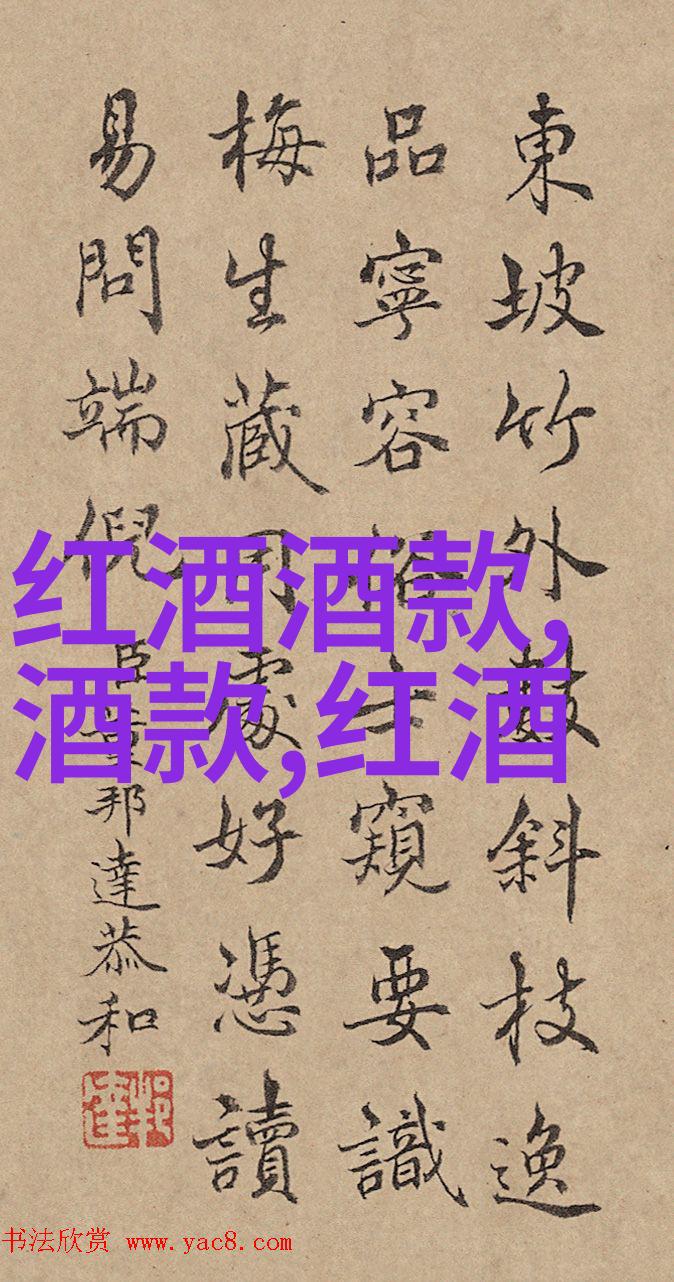 東坡竹外數斜枝逸
品寧容俗士窺要識
梅生藏用處好憑讀
易問端倪 臣董邦達恭和
红酒酒款,
酒款,红酒
书法欣赏 www.yac8.com